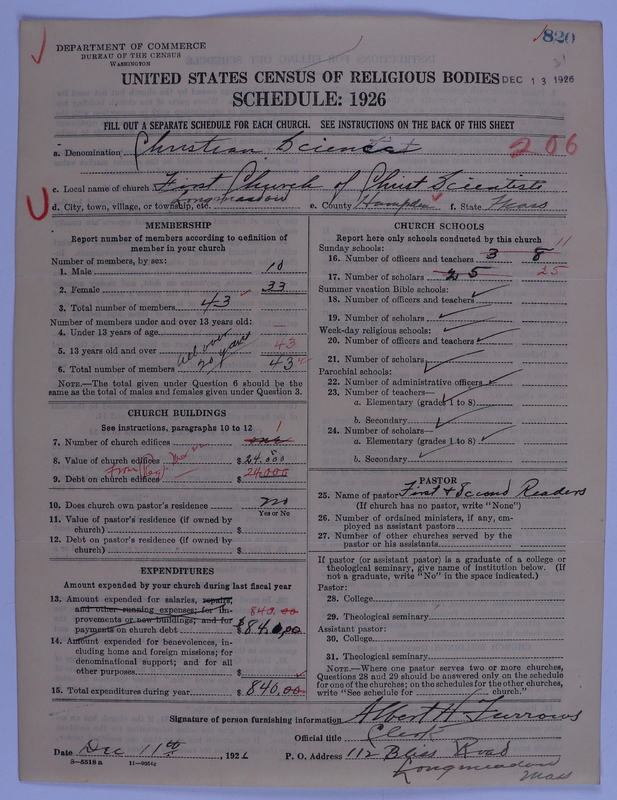 820
DEPARTMENT OF COMMERCE
BUREAU OF THE CENSUS
WASHINGTON
UNITED STATES CENSUS OF RELIGIOUS BODIES DEC 13 1926
SCHEDULE: 1926
FILL OUT A SEPARATE SCHEDULE FOR EACH CHURCH. SEE INSTRUCTIONS ON THE BACK OF THIS SHEET
a. Denomination Christian Scientist 206
c. Local name of church First Church of Christ Scientists
d. City, town, village, or township, etc. Longmeadow e. County Hampden f. State Mass
MEMBERSHIP
Report number of members according to definition of
member in your church
Number of members, by sex:
1. Male 10
2. Female 33
3. Total number of members 43
Number of members under and over 13 years old:
4. Under 13 years of age —
5. 13 years old and over all over 20 years 43
6. Total number of members 43
NOTE.—The total given under Question 6 should be the
same as the total of males and females given under Question 3.
CHURCH BUILDINGS
See instructions, paragraphs 10 to 12
7. Number of church edifices one 1
8. Value of church edifices $24.000
9. Debt on church edifices $24.000
10. Does church own pastor's residence no
Yes or No
11. Value of pastor's residence (if owned by
church) $
12. Debt on pastor's residence (if owned by
church) $
EXPENDITURES
Amount expended by your church during last fiscal year
13. Amount expended for salaries, repairs,
and other running expenses; for im-
provements or new buildings; and for
payments on church debt $840.00
840.00
14. Amount expended for benevolences, in-
cluding home and foreign missions; for
denominational support; and for all
other purposes $
15. Total expenditures during year $840.00
CHURCH SCHOOLS
Report here only schools conducted by this church
Sunday schools:
16. Number of officers and teachers 3 8 11
17. Number of scholars 25 25
Summer vacation Bible schools:
18. Number of officers and teachers
19. Number of scholars
Week-day religious schools:
20. Number of officers and teachers
21. Number of scholars
Parochial schools:
22. Number of administrative officers
23. Number of teachers—
a. Elementary (grades 1 to 8)
b. Secondary
24. Number of scholars—
a. Elementary (grades 1 to 8)
b. Secondary
PASTOR
25. Name of pastor First & Second Readers
(If church has no pastor, write "None")
26. Number of ordained ministers, if any, em-
ployed as assistant pastors
27. Number of other churches served by the
pastor or his assistants
If pastor (or assistant pastor) is a graduate of a college or
theological seminary, give name of institution below. (If
not a graduate, write "No" in the space indicated.)
Pastor:
28. College
29. Theological seminary
Assistant pastor:
30. College
31. Theological seminary
NOTE.—Where one pastor serves two or more churches,
Questions 28 and 29 should be answered only on the schedule
for one of the churches; on the schedules for the other churches,
write "See schedule for church."
Signature of person furnishing information Albert H. Furrows
Official title Clerk
Date Dec 11th, 1926 P. O. Address 112 Bliss Road
Longmeadow
Mass